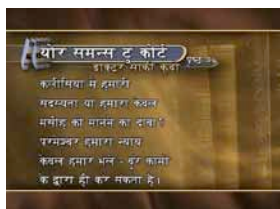 योर समन्स टु कोर्ट
डाक्टर साकी कदा
पृष्ठ
कलीसिया में हमारी
सदस्यता या हमारा केवल
मसीह को मानने का दावा?
परमेश्वर हमारा न्याय
केवल हमारे भले - बुरे कामों
के द्वारा ही कर सकता है।